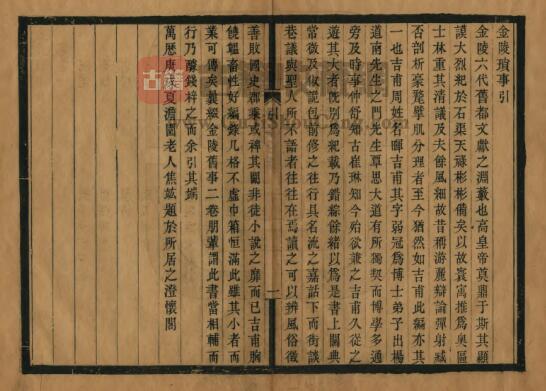 金陵瑣事引
金陵六代舊都文獻之淵藪也高皇帝奠鼎于斯其顯
謨大烈紀於石渠天祿彬彬備矣以故袁寓推爲奧區
士林重其清議及夫餘風細故昔稱游麗辯論彈射臧
否剖析豪氂擘肌分理者至今猶然如吉甫此編亦其
一也吉甫周姓名暉吉甫其字弱冠爲博士弟子出楊
道南先生之門先生覃思大道有所獨契而博學多通
旁及時事仲舒知古崔琳知今殆欲兼之吉甫久從之
遊其大者旣別爲紀載乃錯綜餘緒以爲是書上關典
常微及俶詭包前修之往行具名流之嘉話下而街談
巷議與聖人所不語者往往在焉讀之可以辨風俗徵
善敗國史郡乘或裨其闕非徒小說之靡而已吉甫胸
饒韞畜性好編錄几格不虛巾箱恒滿此雖其小者而
業可傳矣曩繇金陵舊事二卷朋輩謂此書當相輔而
行乃醵錢梓之而余引其耑
萬曆庚戌夏澹園老人焦竑題於所居之澄懷閣
引
一
古籍